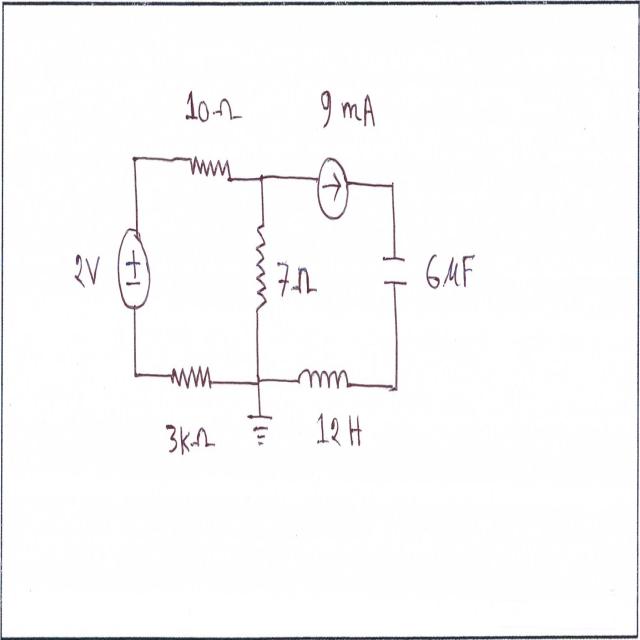 10Ω
9 mA
+
−
2V
7Ω
6µF
3kΩ
12H